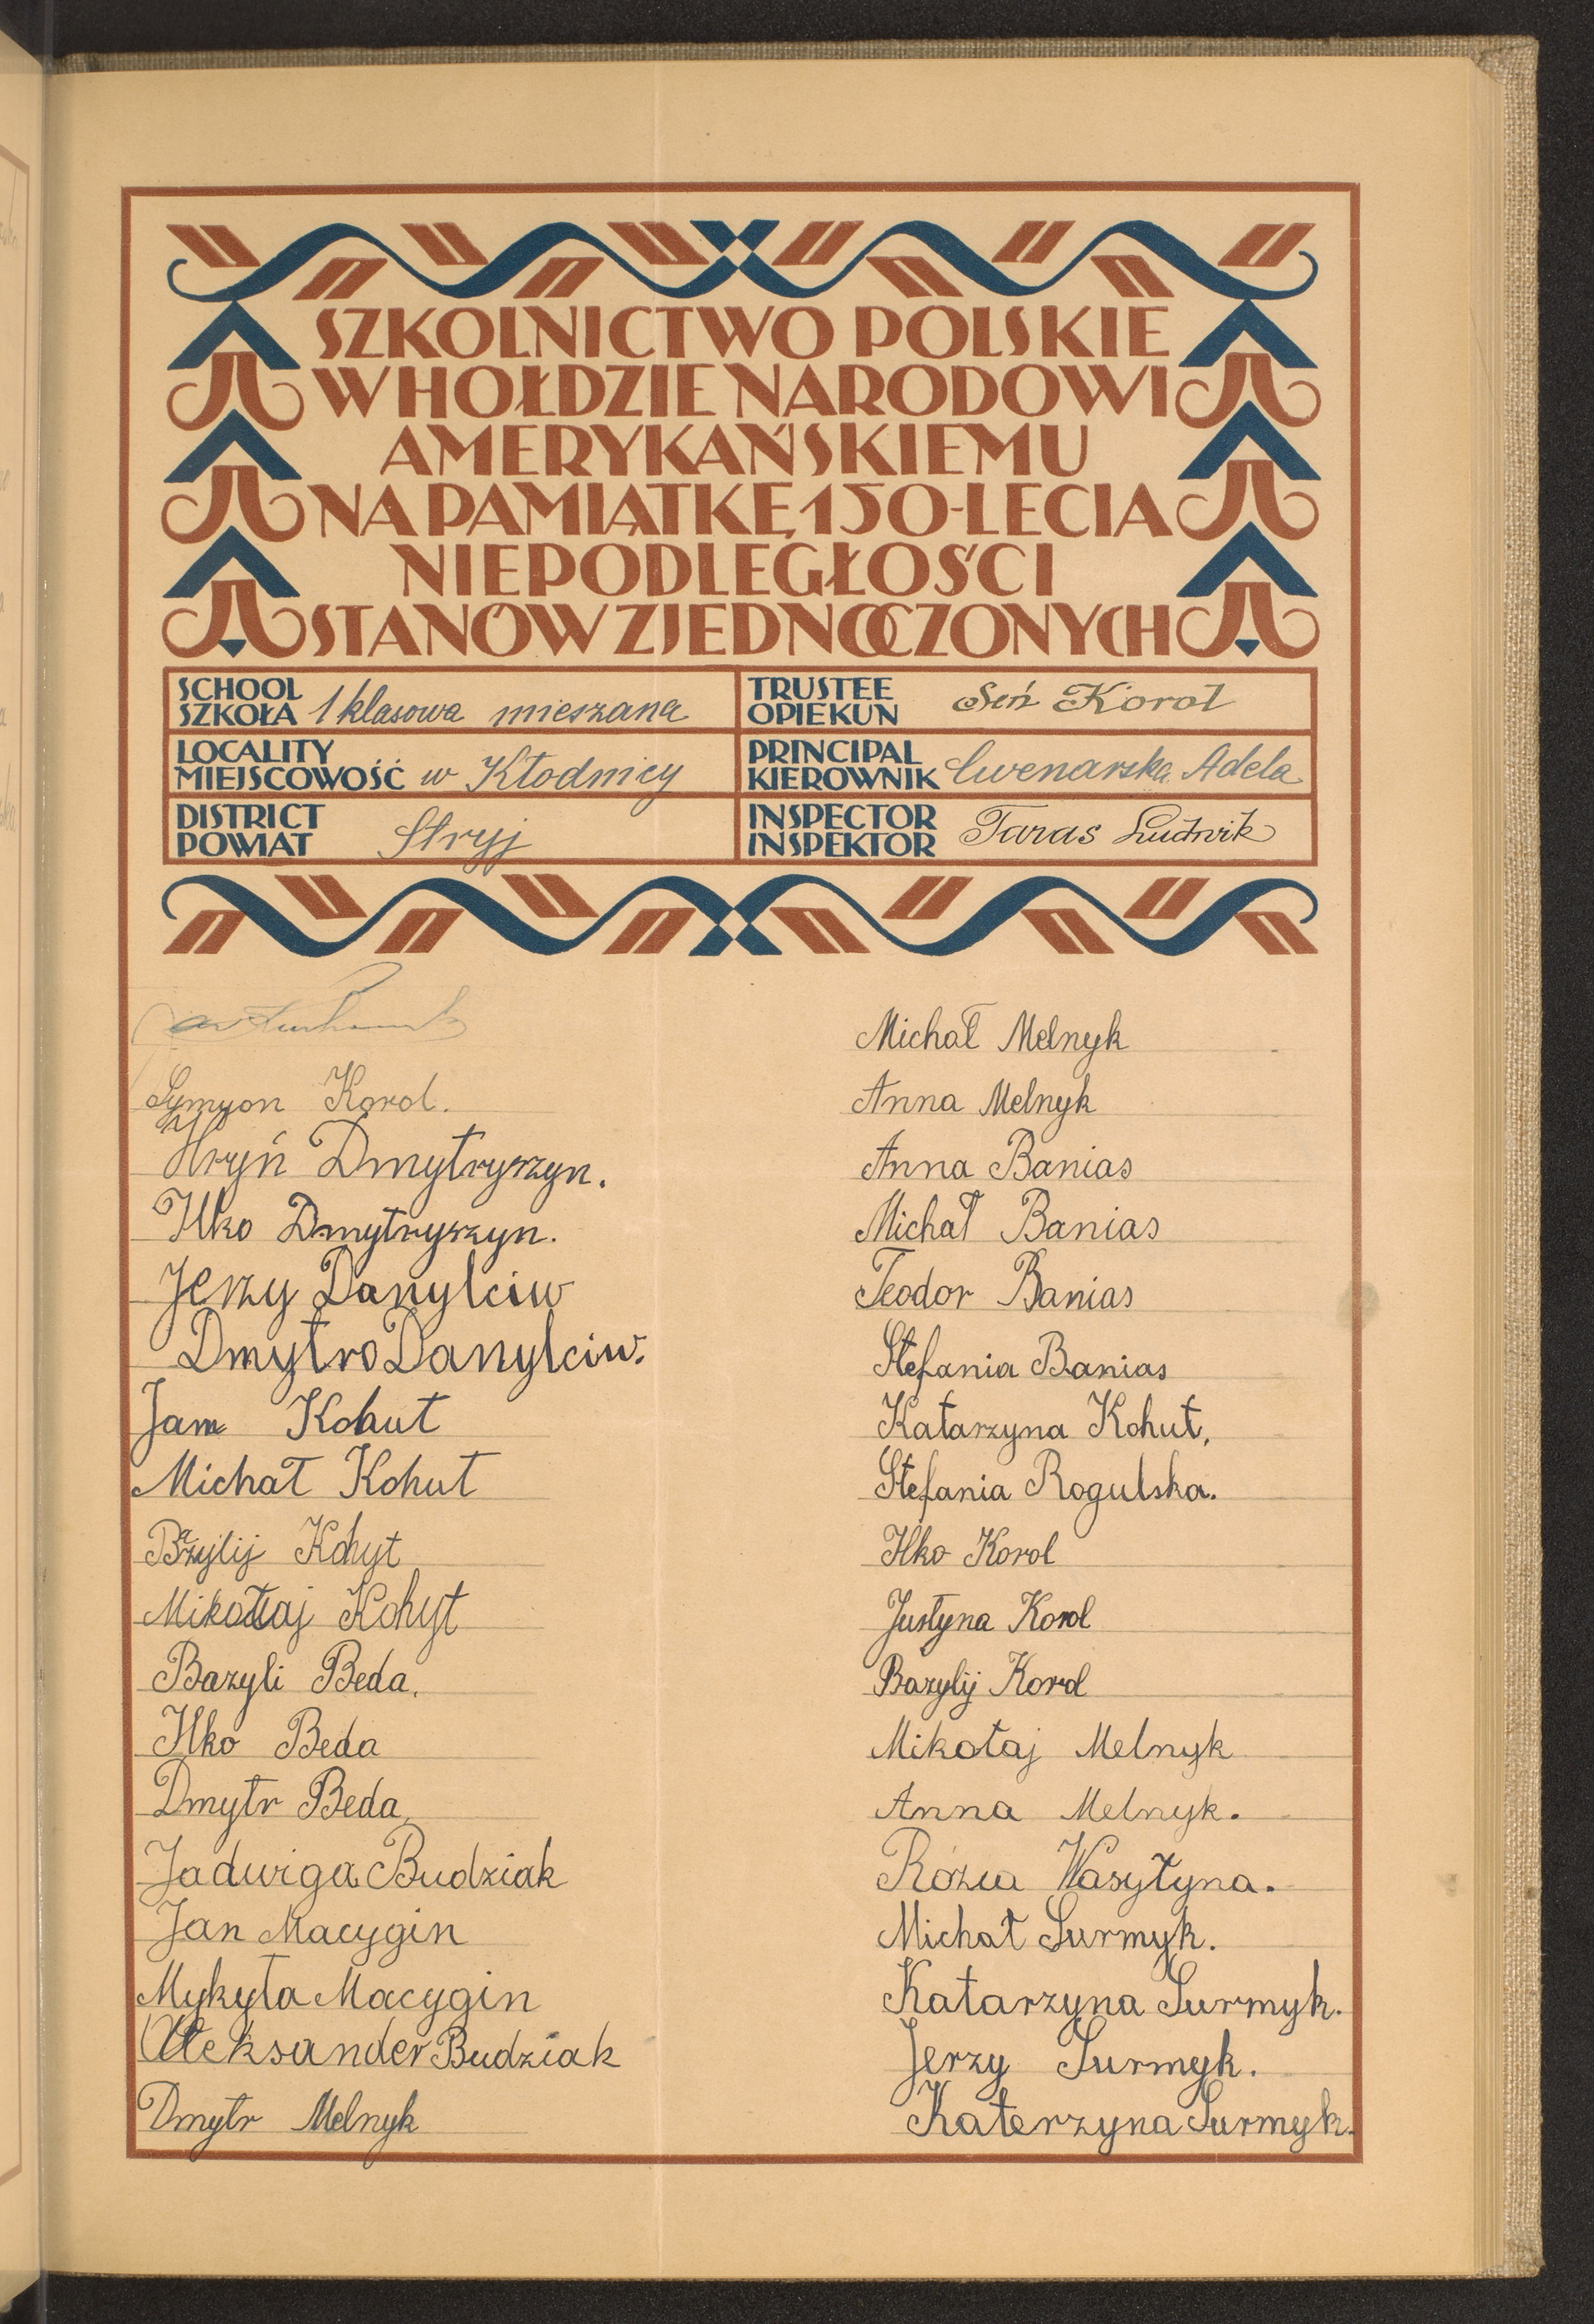 SZKOLNICTWO POLSKIE
W HOŁDZIE NARODOWI
AMERYKAŃSKIEMU
NA PAMIĄTKĘ 150-LECIA
NIEPODLEGŁOŚCI
STANÓW ZJEDNOCZONYCH
SCHOOL
SZKOŁA 1 klasowa mieszana
LOCALITY
MIEJSCOWOŚĆ w Kłodnicy
DISTRICT
POWIAT Stryj
TRUSTEE
OPIEKUN Seń Korol
PRINCIPAL
KIEROWNIK Cwenarska Adela
INSPECTOR
INSPEKTOR Taras Ludwik
Symyon Korol.
Hryń Dmytryszyn.
Ilko Dmytryszyn.
Jerzy Danylciw
Dmytro Danylciw.
Jam Kohut
Michał Kohut
Bazylij Kohyt
Mikołaj Kohyt
Bazyli Beda.
Ilko Beda
Dmytr Beda
Jadwiga Budziak
Jan Macygin
Mykyta Macygin
Aleksander Budziak
Dmytr Melnyk
Michał Melnyk
Anna Melnyk
Anna Banias
Michał Banias
Teodor Banias
Stefania Banias
Katarzyna Kohut,
Stefania Rogulska.
Ilko Korol
Justyna Korol
Bazylij Korol
Mikołaj Melnyk
Anna Melnyk.
Rózia Wasyłyna.
Michał Surmyk.
Katarzyna Surmyk.
Jerzy Surmyk.
Katerzyna Surmyk.